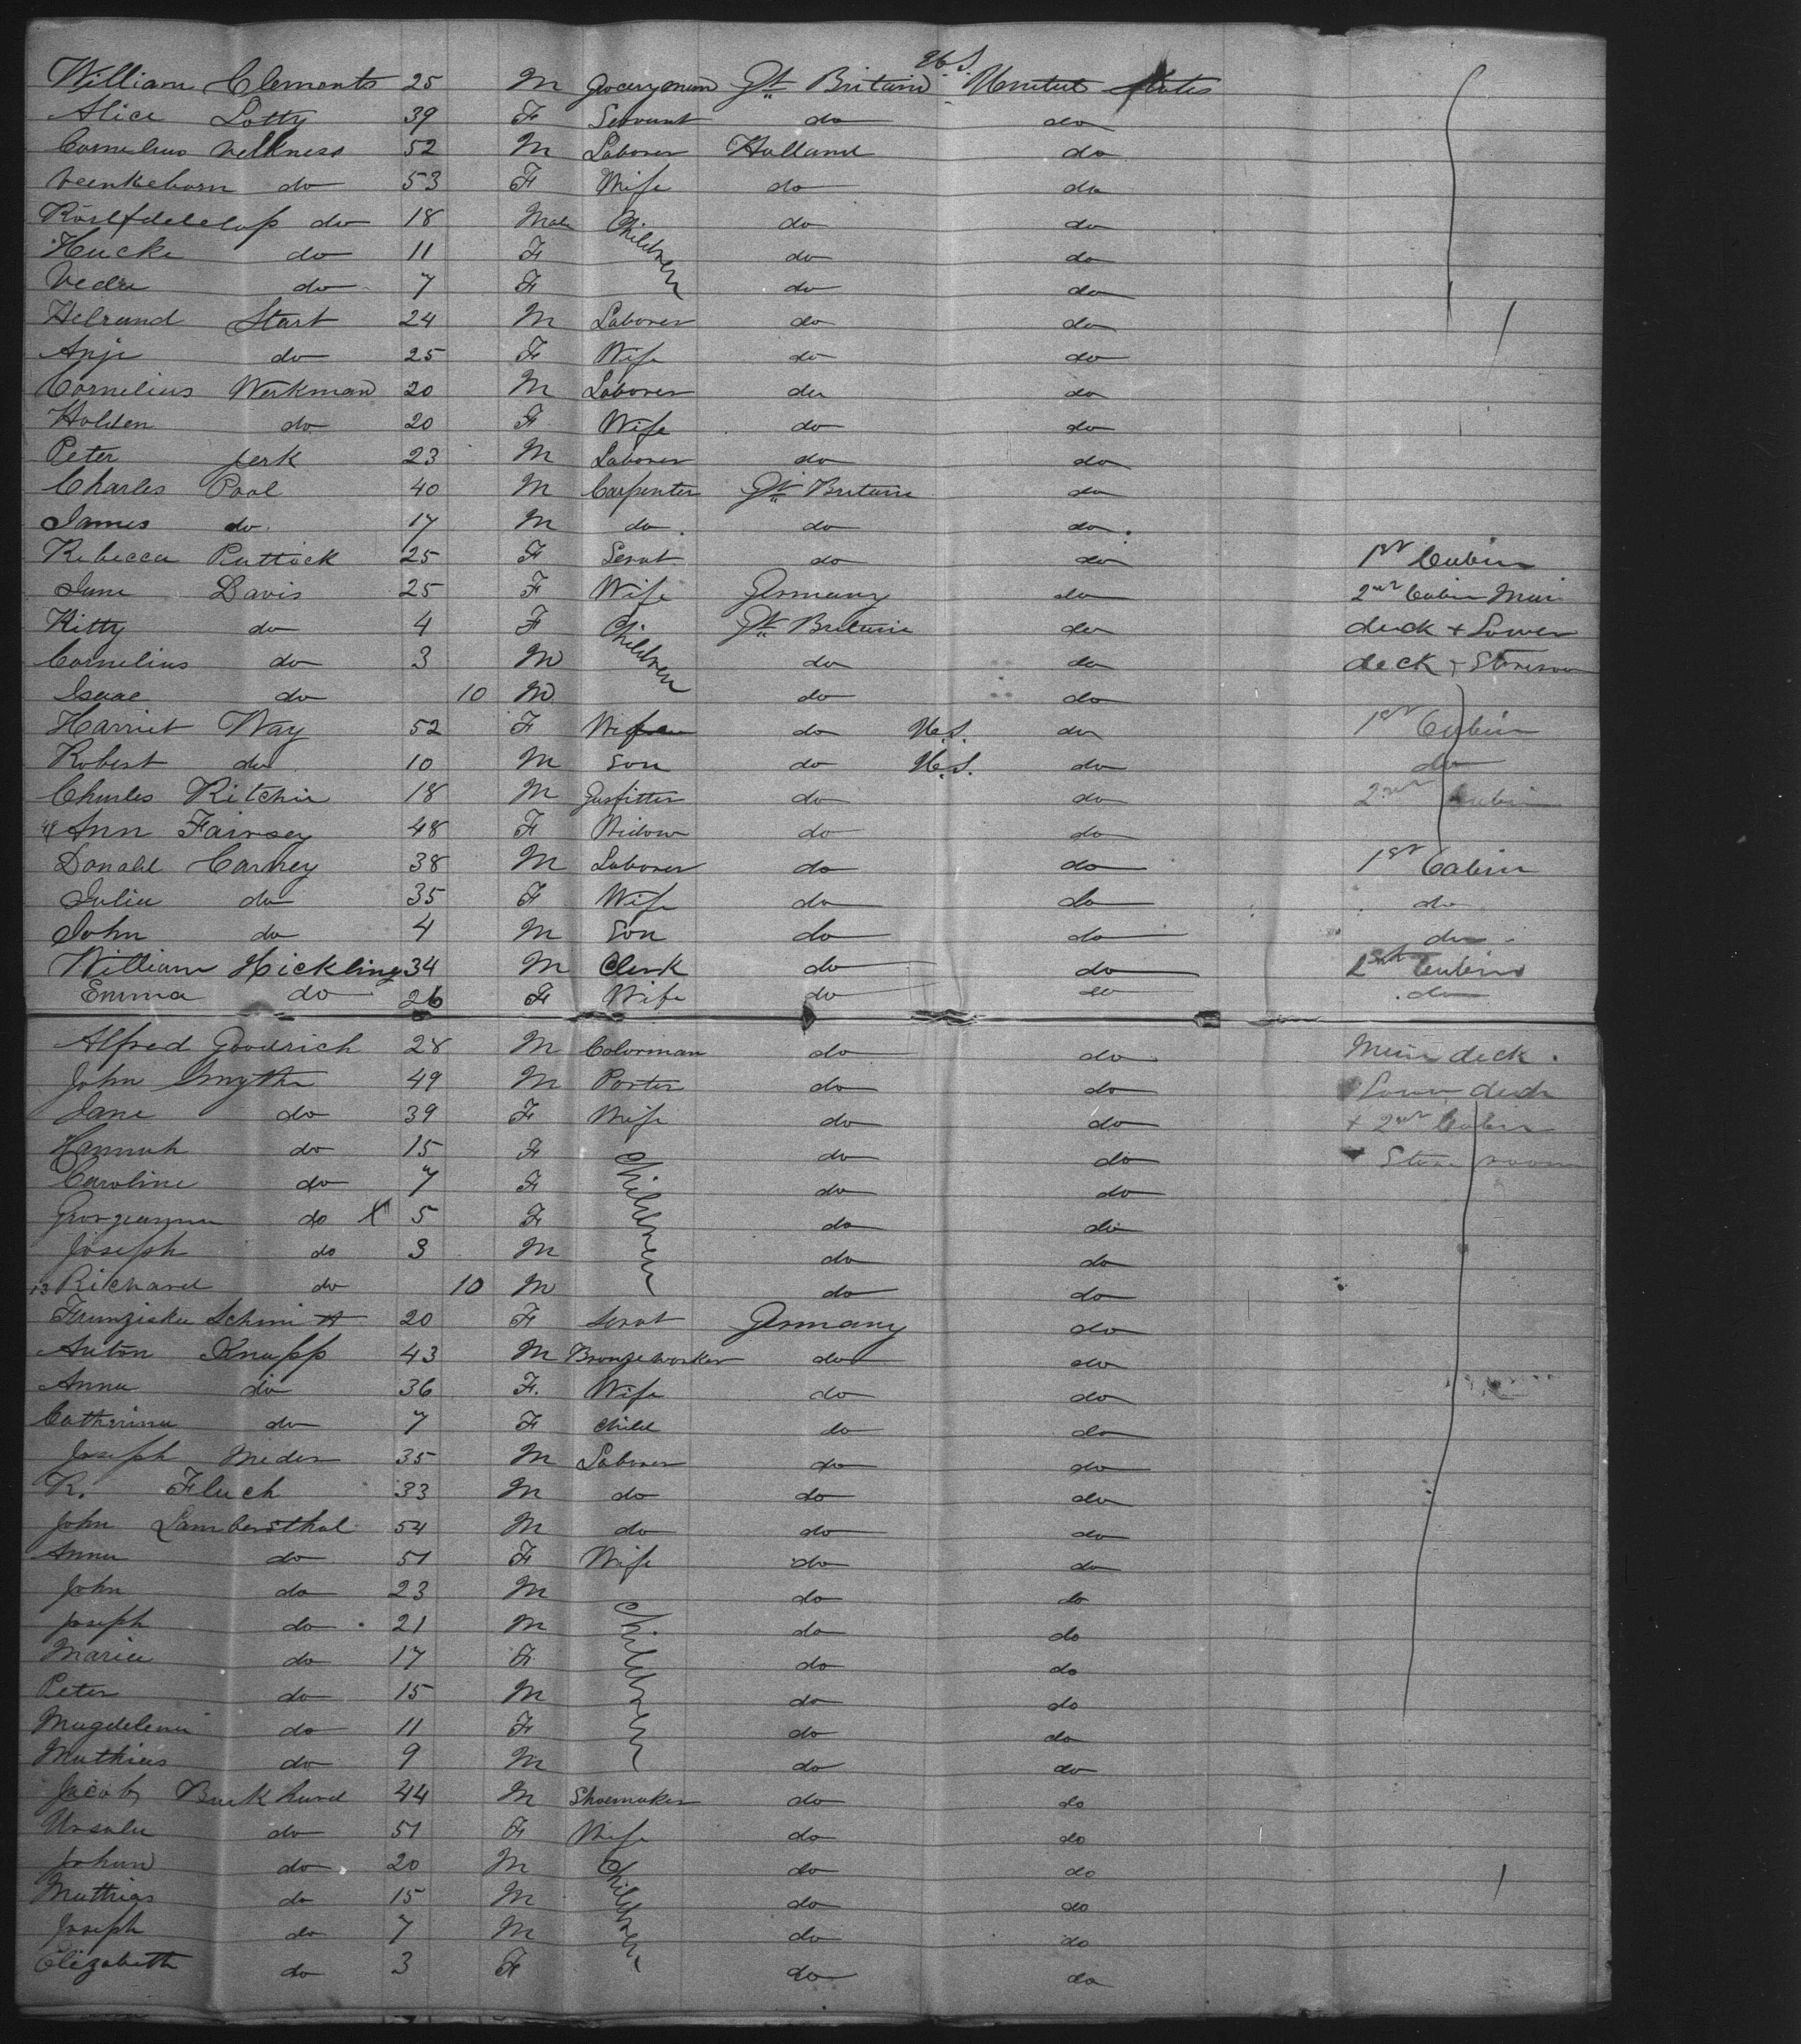 U.S.
William Clements 25 M Grocery man Gt Britain United States
Alice Lotty 39 F Servant do do
Cornelius Velkness 52 M Laborer Holland do
do 53 F Wife do do
do 18 Male Children do do
Hucke do 11 F do do
do 7 F do do
Start 24 M Laborer do do
Anje do 25 F Wife do do
Cornelius Werkman 20 M Laborer do do
Holden do 20 F Wife do do
Peter Jerk 23 M Laborer do do
Charles Pool 40 M Carpenter Gt Britain do
James do 17 M do do do
Rebecca Puttock 25 F Servt do do 1st Cabin
Jane Davis 25 F Wife Germany do 2nd Cabin Main
Kitty do 4 F Children Gt Britain do deck + Lower
Cornelius do 3 M do do deck + Storeroom
Isaac do 10 M do do
Harriet Way 52 F Wife do U.S. do 1st Cabin
Robert do 10 M Son do U.S. do do
Charles Ritchie 18 M Gasfitter do do 2nd Cabin
Ann Fairsey 48 F Widow do do
Donald Carney 38 M Laborer do do 1st Cabin
Julia do 35 F Wife do do do
John do 4 M Son do do do
William Hickling 34 M Clerk do do Cabin
Emma do 26 F Wife do do do
Alfred Goodrich 28 M Colorman do do Main deck.
John Smythe 49 M Porter do do Lower deck
Jane do 39 F Wife do do + 2nd Cabin
Hannah do 15 F Children do do + Store room
Caroline do 7 F do do
Georgeanna do X 5 F do do
Joseph do 3 M do do
Richard do 10 M do do
Franziska Schmitt 20 F Servt Germany do
Anton Knapp 43 M Bronzeworker do do
Anna do 36 F. Wife do do
Catherina do 7 F Child do do
Joseph Meder 35 M Laborer do do
K. Fluch 33 M do do do
John Lambersthal 54 M do do do
Anna do 51 F Wife do do
John do 23 M Children do do
Joseph do 21 M do do
Maria do 17 F do do
Peter do 15 M do do
Magdelena do 11 F do do
Mathias do 9 M do do
Jacob Burkhard 44 M Shoemaker do do
Ursula do 51 F Wife do do
Johan do 20 M Children do do
Mathias do 15 M do do
Joseph do 7 M do do
Elizabeth do 3 F do do